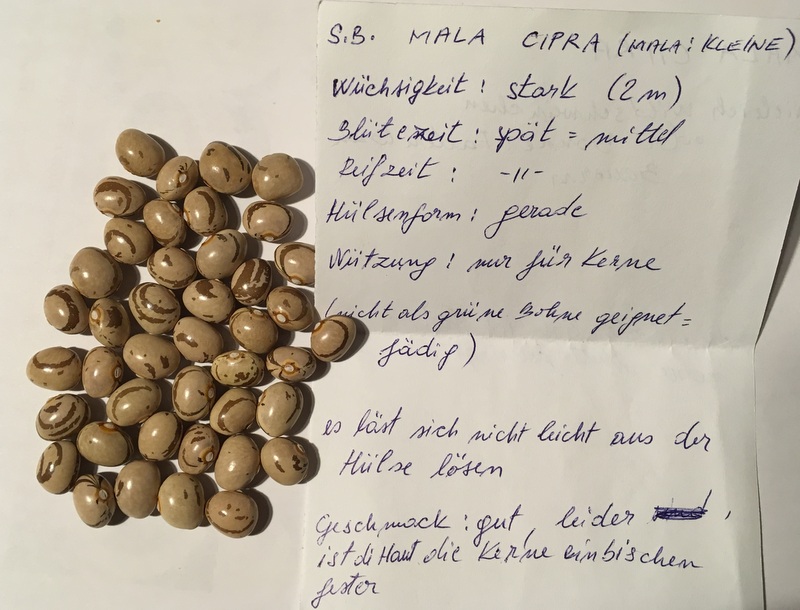 S.B. MALA CIPRA (MALA: KLEINE)
Wüchsigkeit: stark (2m)
Blütezeit: spät = mittel
Reifzeit: -11-
Hülsenform: gerade
Nützung: nur für Kerne
(nicht als grüne Bohne geignet =
fädig)
es läst sich nicht leicht aus der
Hülse lösen
Geschmack: gut, leider ,
ist di Haut die Kerne einbischen
fester